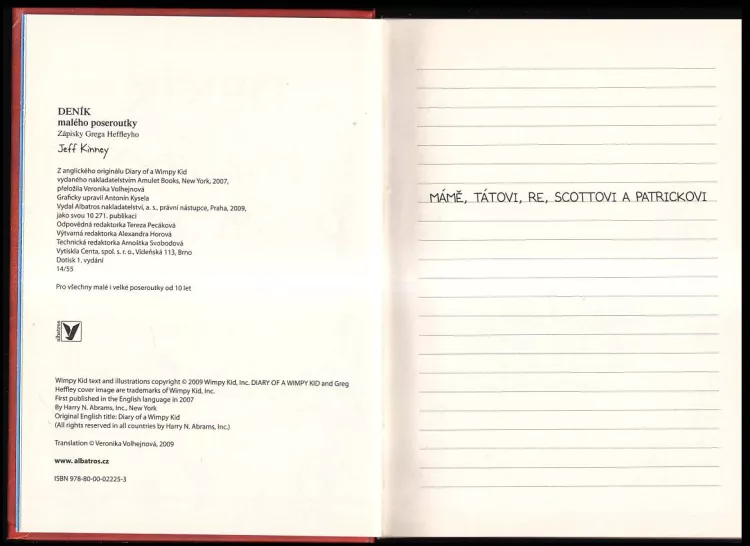 DENÍK
malého poseroutky
Zápisky Grega Heffleyho
Jeff Kinney
Z anglického originálu Diary of a Wimpy Kid
vydaného nakladatelstvím Amulet Books, New York, 2007,
přeložila Veronika Volhejnová
Graficky upravil Antonín Kysela
Vydal Albatros nakladatelství, a. s., právní nástupce, Praha, 2009,
jako svou 10 271. publikaci
Odpovědná redaktorka Tereza Pecáková
Výtvarná redaktorka Alexandra Horová
Technická redaktorka Arnoštka Svobodová
Vytiskla Centa, spol. s. r. o., Vídeňská 113, Brno
Dotisk 1. vydání
14/55
Pro všechny malé i velké poseroutky od 10 let
albatros
Wimpy Kid text and illustrations copyright © 2009 Wimpy Kid, Inc. DIARY OF A WIMPY KID and Greg
Heffley cover image are trademarks of Wimpy Kid, Inc.
First published in the English language in 2007
By Harry N. Abrams, Inc., New York
Original English title: Diary of a Wimpy Kid
(All rights reserved in all countries by Harry N. Abrams, Inc.)
Translation © Veronika Volhejnová, 2009
www. albatros.cz
ISBN 978-80-00-02225-3
MÁMĚ, TÁTOVI, RE, SCOTTOVI A PATRICKOVI